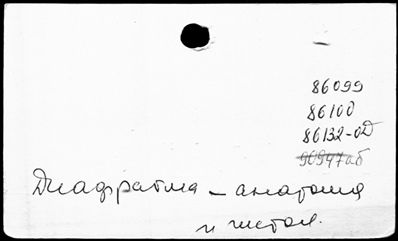 86099
86100
86132-ОД
90947аб
Диафрагма – анатомия
и гистол.